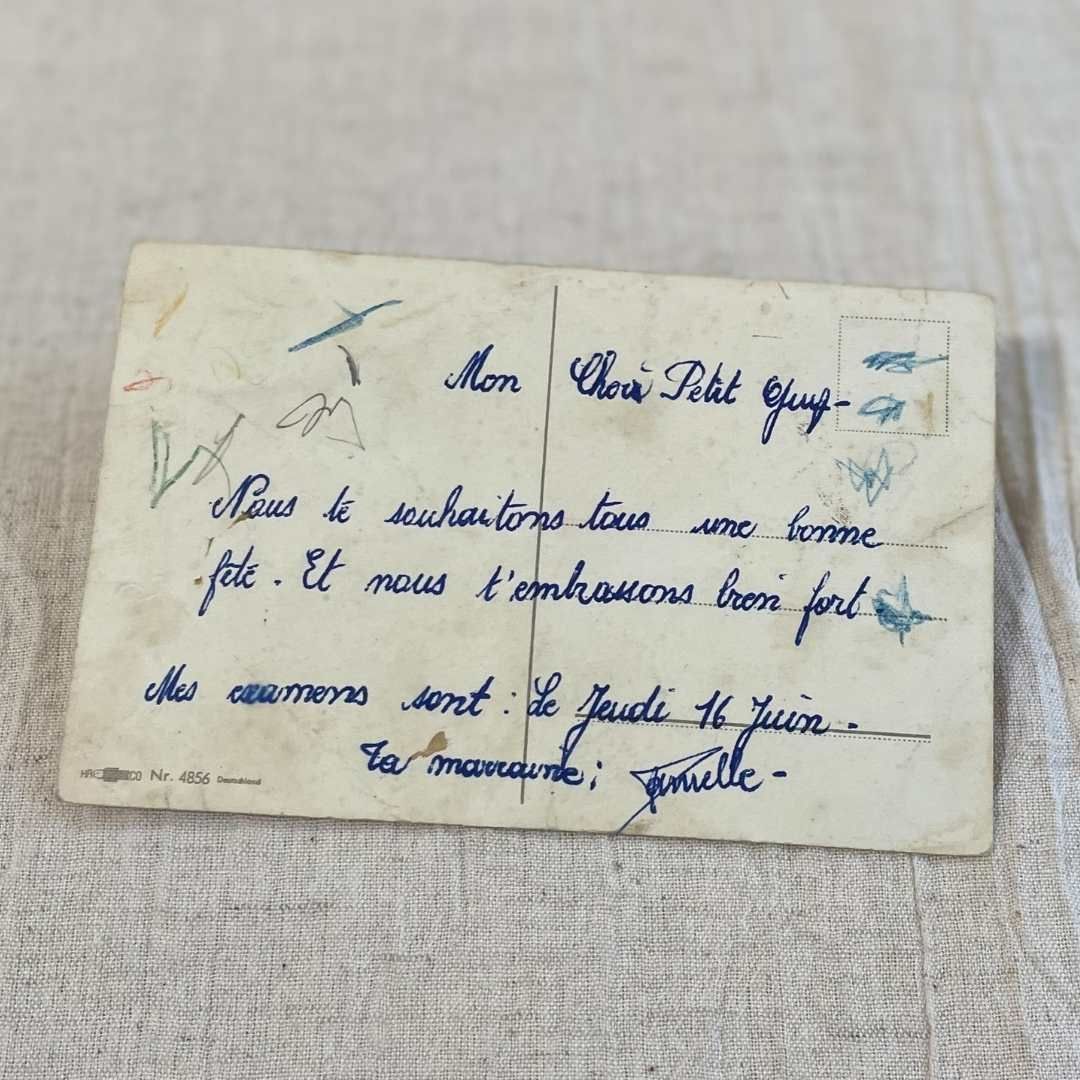 Mon Petit
Nous te souhaitons tous une bonne
fête. Et nous t'embrassons bien fort
Mes examens sont : Le Jeudi 16 Juin.
Ta marraine;
Nr. 4856 Deutschland